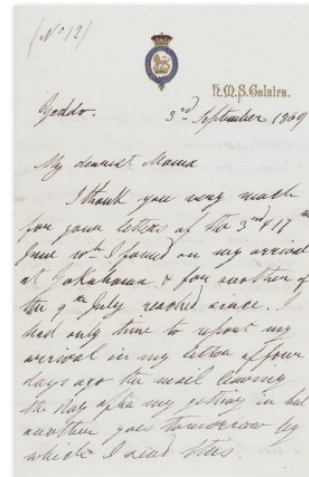 (No 12)
H.M.S. Galatea.
Yeddo. 3rd September 1869
My dearest Mama
I thank you very much
for your letters of the 3rd & 17th
June wh. I found on my arrival
at Yokohama & for another of
the 9th July recd since. I
had only time to report my
arrival in my letter of four
days ago the mail leaving
the day after my getting in but
another goes tomorrow by
which I send this.